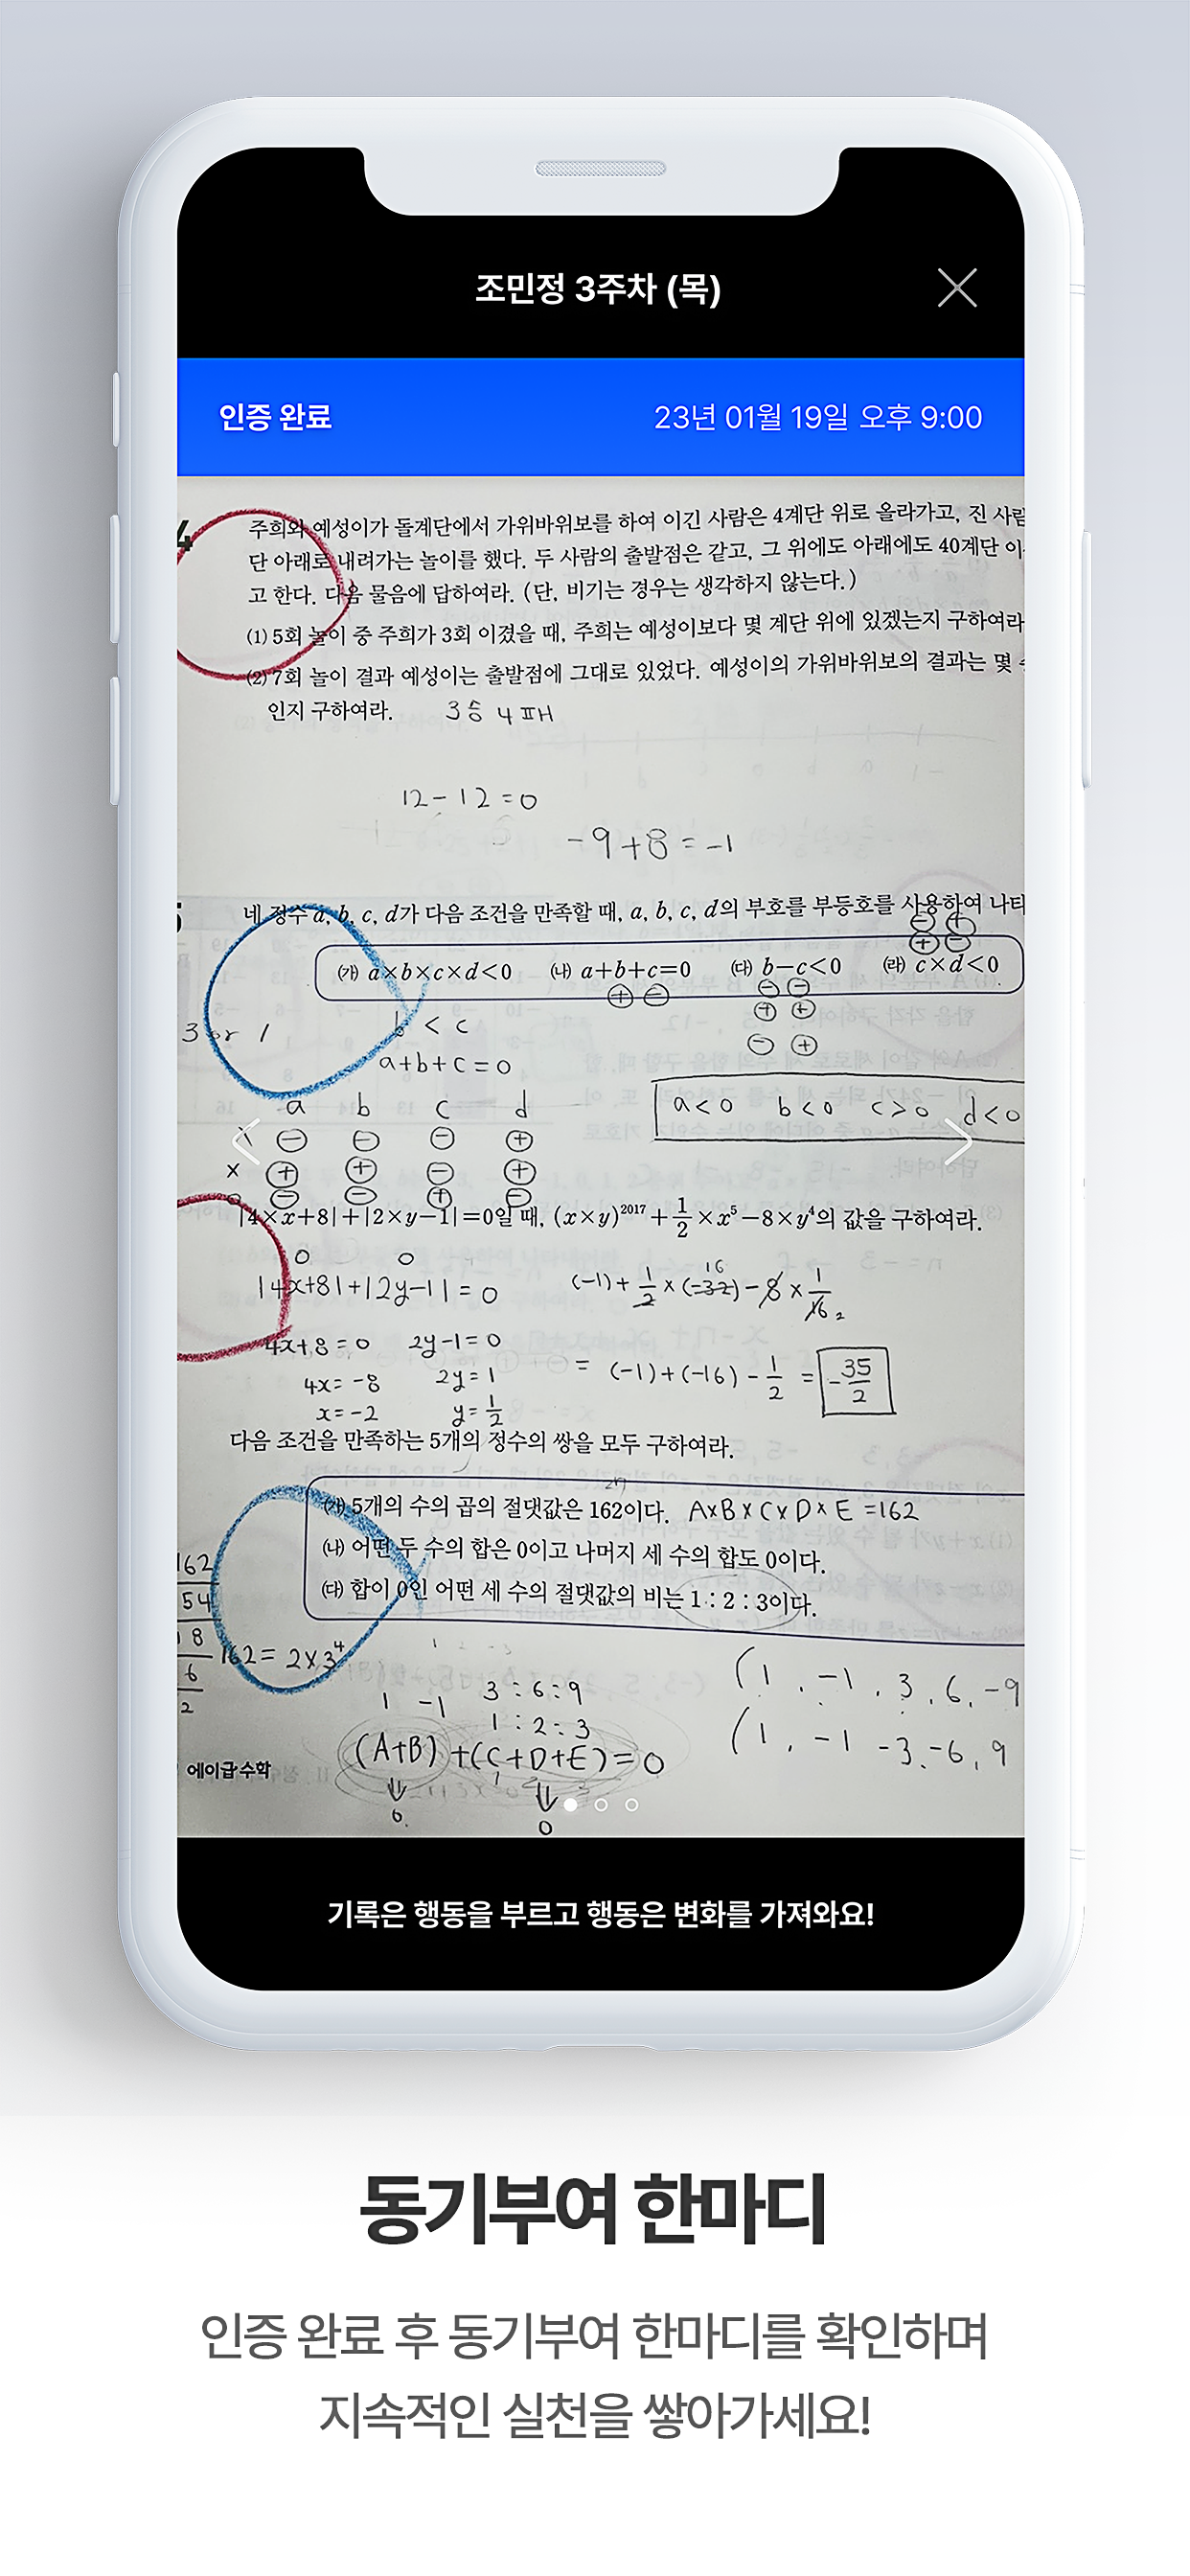 조민정 3주차 (목)
인증 완료
23년 01월 19일 오후 9:00
4
주희와 예성이가 돌계단에서 가위바위보를 하여 이긴 사람은 4계단 위로 올라가고, 진 사람
단 아래로 내려가는 놀이를 했다. 두 사람의 출발점은 같고, 그 위에도 아래에도 40계단 이
고 한다. 다음 물음에 답하여라. (단, 비기는 경우는 생각하지 않는다.)
(1) 5회 놀이 중 주희가 3회 이겼을 때, 주희는 예성이보다 몇 계단 위에 있겠는지 구하여라
(2) 7회 놀이 결과 예성이는 출발점에 그대로 있었다. 예성이의 가위바위보의 결과는 몇
인지 구하여라. 3승 4패
12-12=0
-9+8=-1
5
네 정수 a, b, c, d가 다음 조건을 만족할 때, a, b, c, d의 부호를 부등호를 사용하여 나타
⊖ ⊕
⊕ ⊖
㈎ a×b×c×d<0 ㈏ a+b+c=0 ㈐ b-c<0 ㈑ c×d<0
⊕ ⊖ ⊖ ⊖
⊕ ⊕
⊖ ⊕
3 or 1
b < c
a+b+c=0
a b c d
a<0 b<0 c>0 d<0
x ⊖ ⊖ ⊖ ⊕
x ⊕ ⊕ ⊖ ⊕
o ⊖ ⊖ ⊕ ⊖
|4×x+8|+|2×y-1|=0일 때, (x×y)²⁰¹⁷+1/2×x⁵-8×y⁴의 값을 구하여라.
0 0
|4x+8|+|2y-1|=0
(-1)+1/2×(-32)-8×1/16
16
2
4x+8=0 2y-1=0
4x=-8 2y=1
x=-2 y=1/2
= (-1)+(-16)-1/2 = -35/2
다음 조건을 만족하는 5개의 정수의 쌍을 모두 구하여라.
㈎ 5개의 수의 곱의 절댓값은 162이다. A×B×C×D×E=162
㈏ 어떤 두 수의 합은 0이고 나머지 세 수의 합도 0이다.
㈐ 합이 0인 어떤 세 수의 절댓값의 비는 1 : 2 : 3이다.
162
54
18
6
2
162=2×3⁴
1 -1 3:6:9
1:2:3
(A+B)+(C+D+E)=0
0 0
(1, -1, 3, 6, -9
(1, -1 -3, -6, 9
에이급 수학
기록은 행동을 부르고 행동은 변화를 가져와요!
동기부여 한마디
인증 완료 후 동기부여 한마디를 확인하며
지속적인 실천을 쌓아가세요!